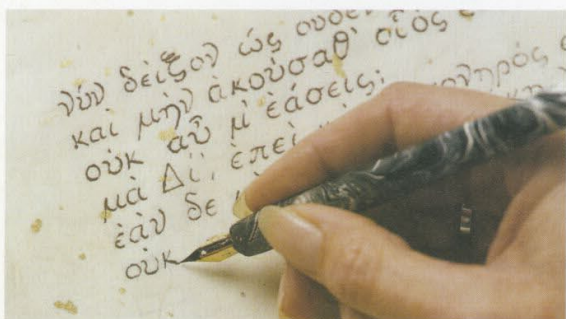 νῦν δεῖξον ὡς οὐδὲν
καὶ μὴν ἀκούσαθ' οἷός
οὐκ αὖ μ' ἐάσεις;
μὰ Δί', ἐπεὶ πονηρός
ἐὰν δε
οὐκ